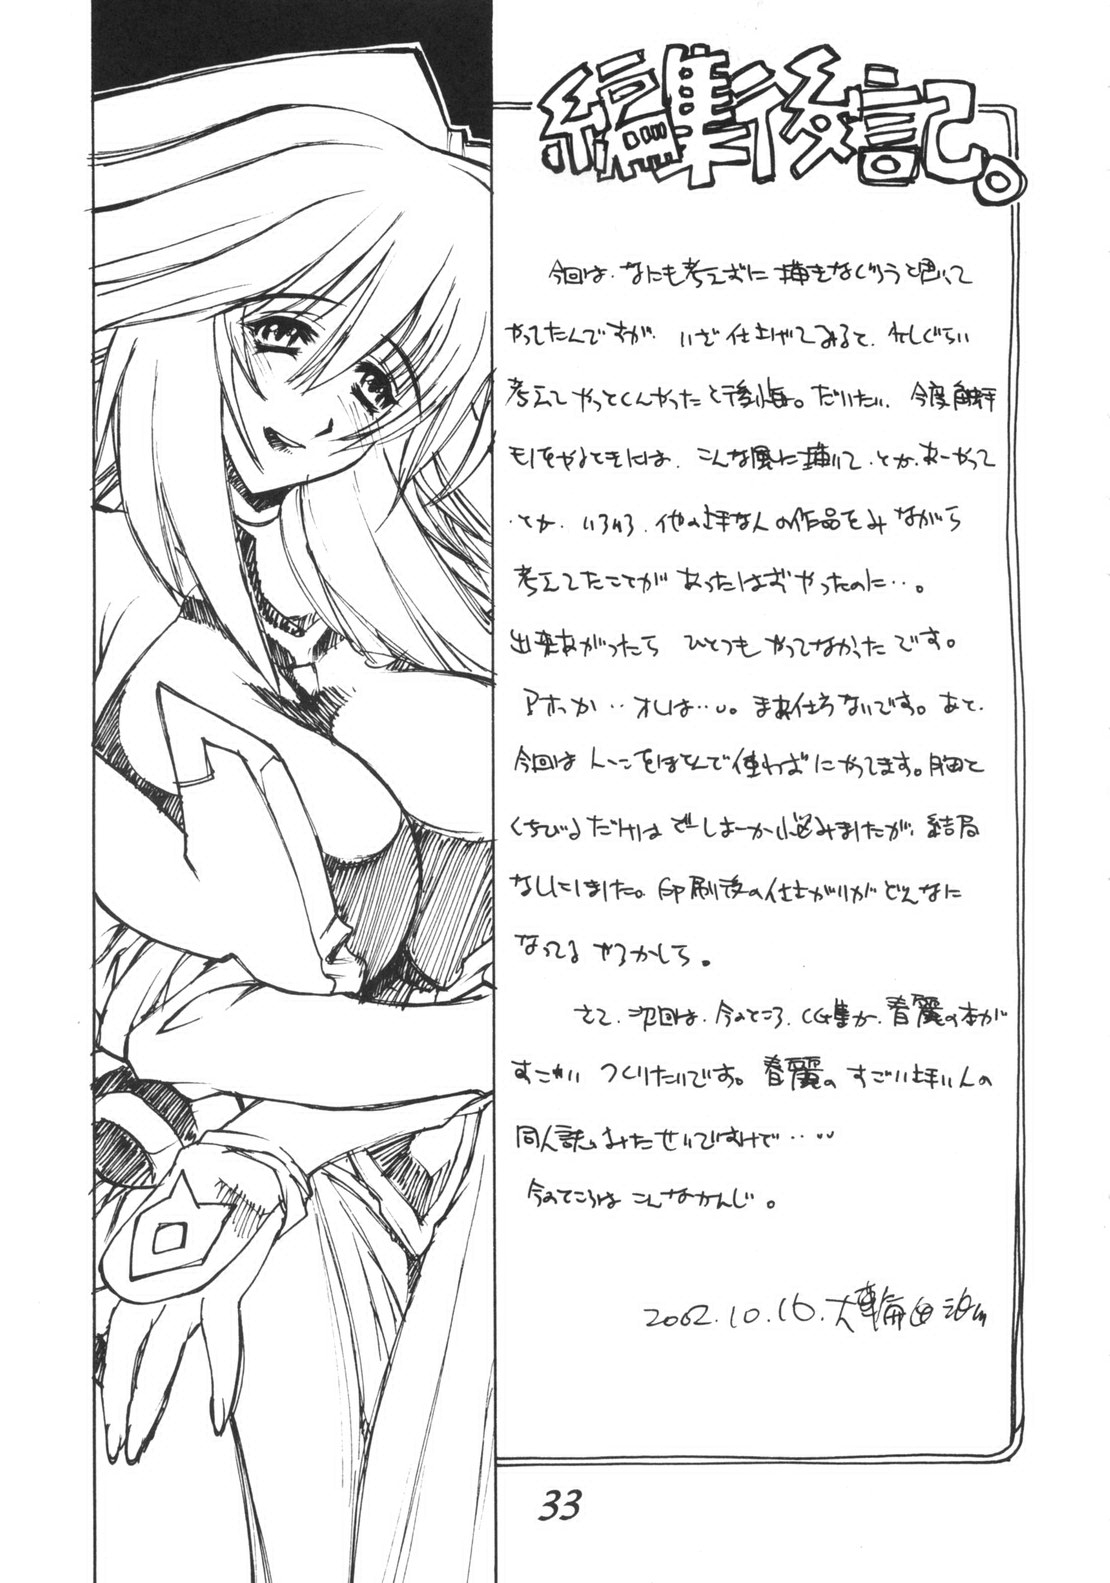 編集後記。
今回は、なにも考えずに描きなぐろうと思って
やってたんですが、いざ仕上げてみると、もしぐらい
考えてやっとくんやったと後悔。だいたい、今度触手
モノをやるときには、こんな風に描いて、とか、あーやって
とか、いろいろ、他の上手な人の作品をみながら
考えてたことがあったはずやったのに…。
出来あがったら ひとつも やってなかったです。
アホっか‥オレは…。まあ仕方ないです。あと、
今回はトーンをほとんど使わずにやってます。胸と
くちびるだけはどーしよーか悩みましたが、結局
なしにしました。印刷後の仕上がりがどんなに
なってる やろかしら。
さて、次回は、今のところ、CG集か、春麗の本が
すごい つくりたいです。春麗の すごい上手い人の
同人誌をみたせいですけど…‥
今のところは こんなかんじ。
2002.10.16.大輪田
33